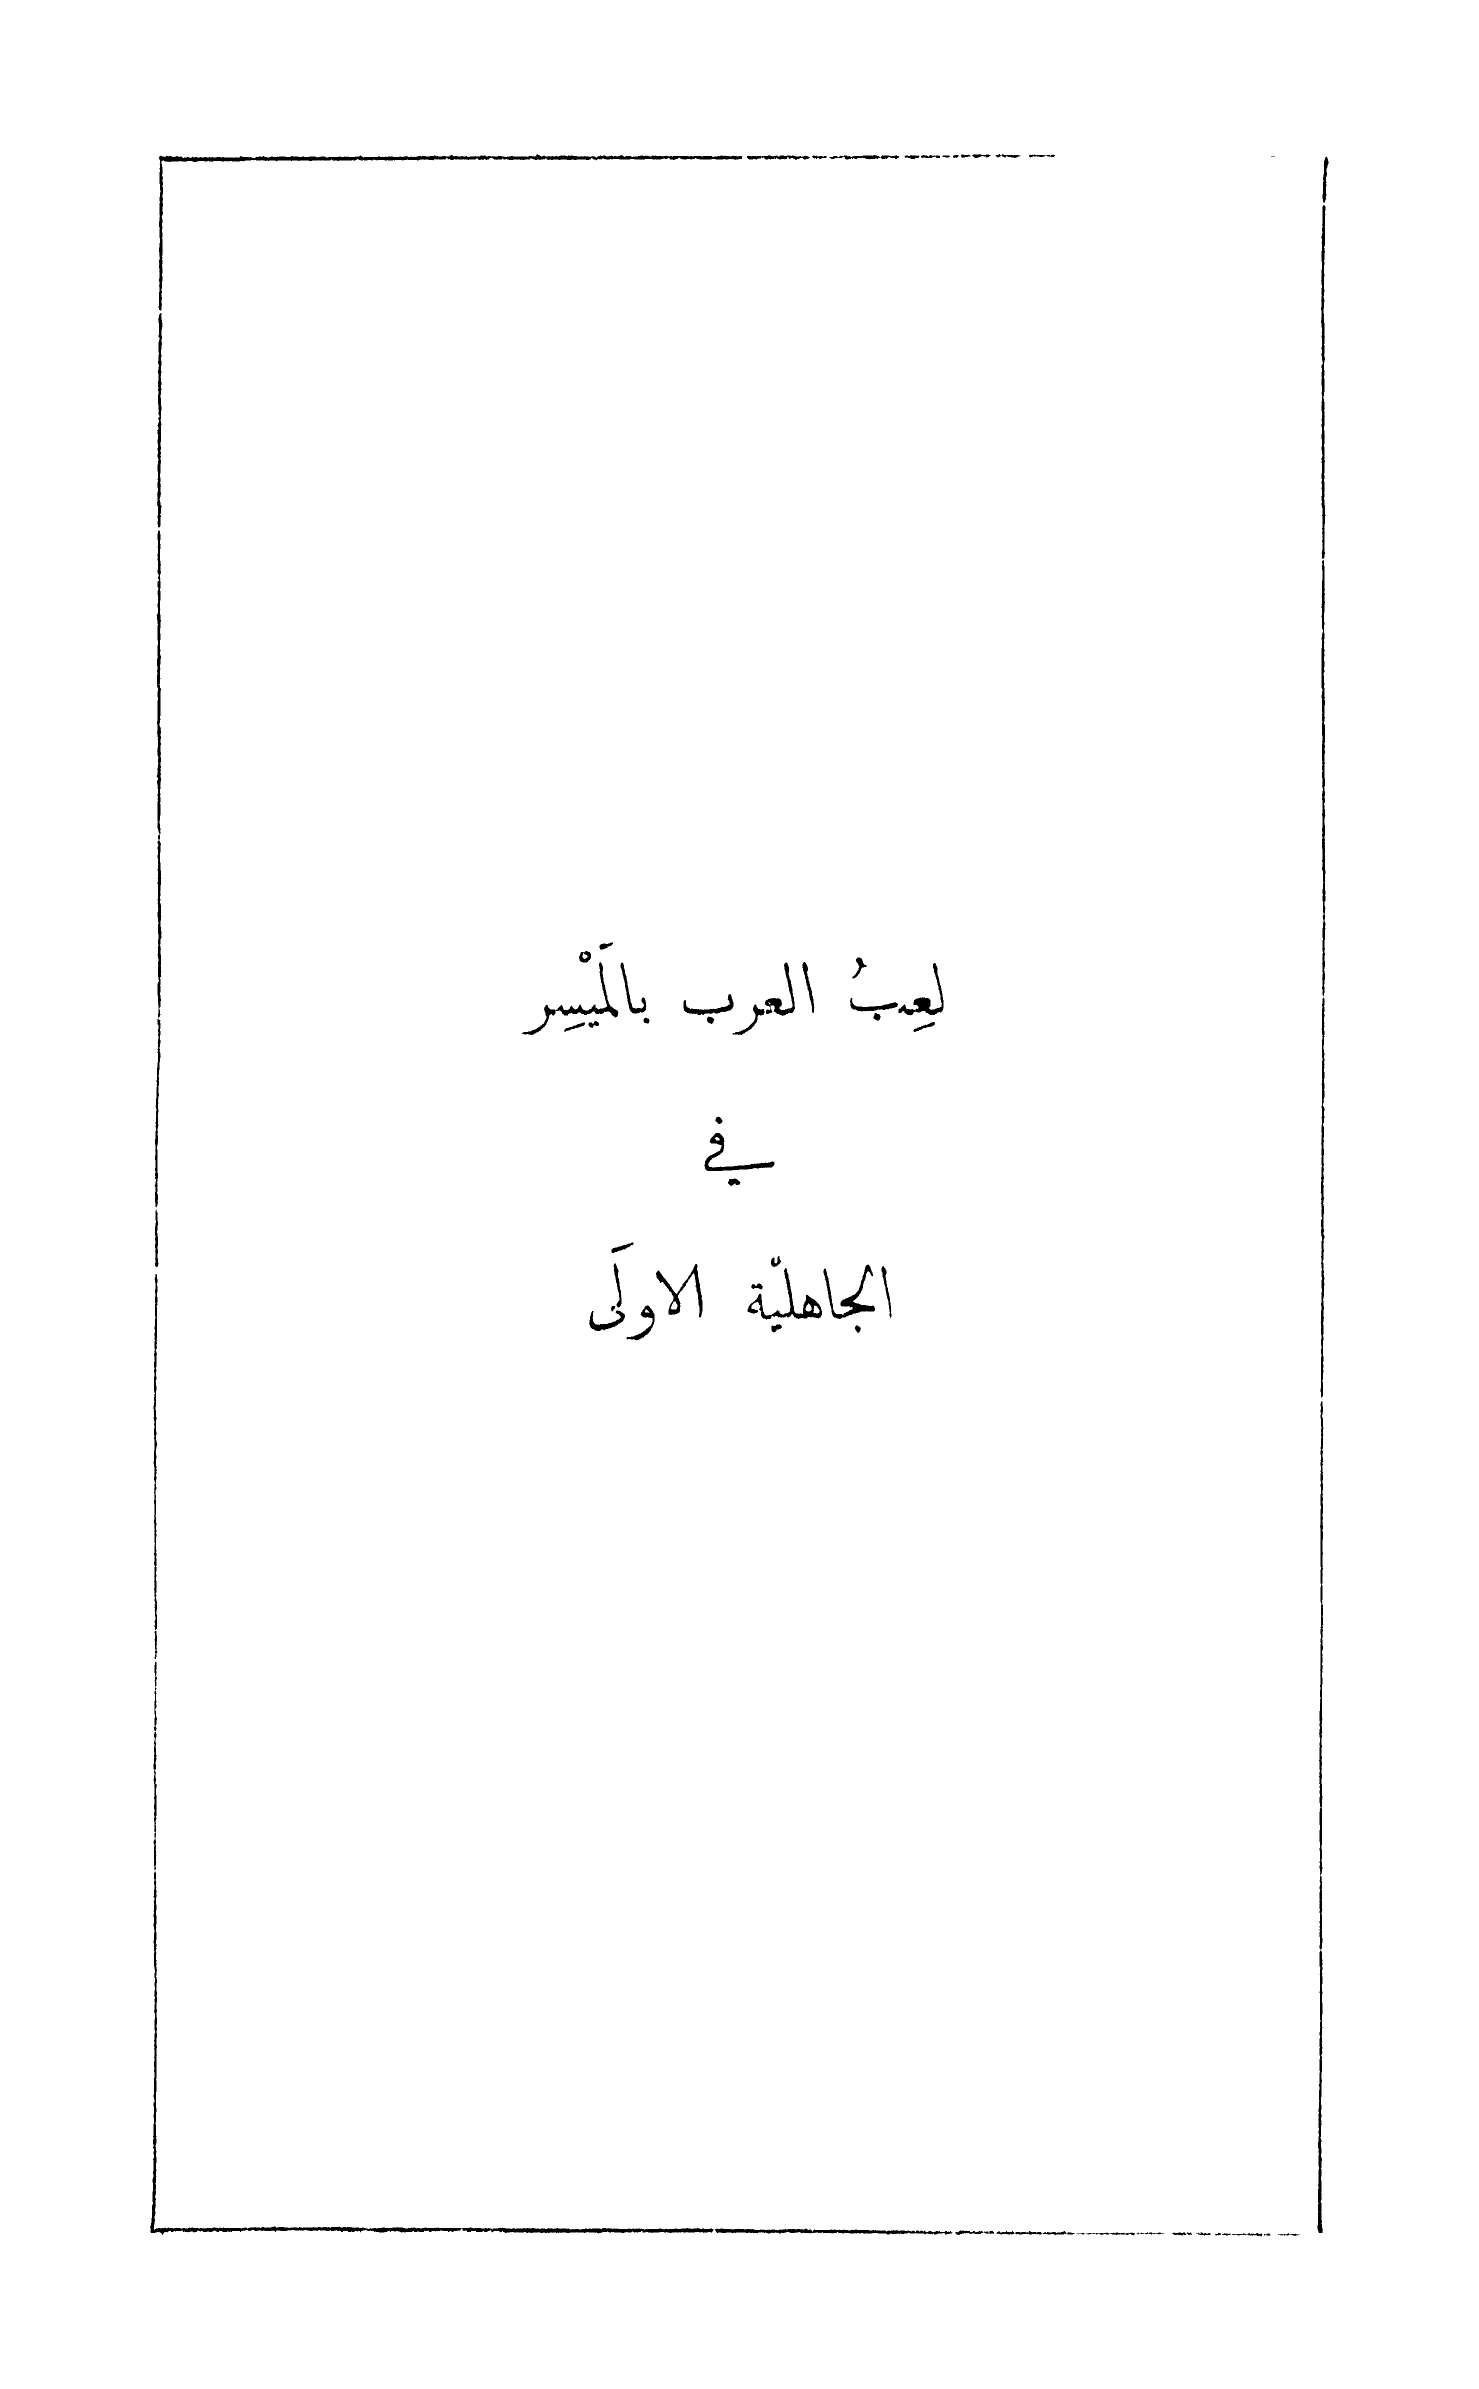 لعِبُ العرب بالمَيْسِر
في
الجاهليّة الاولَى